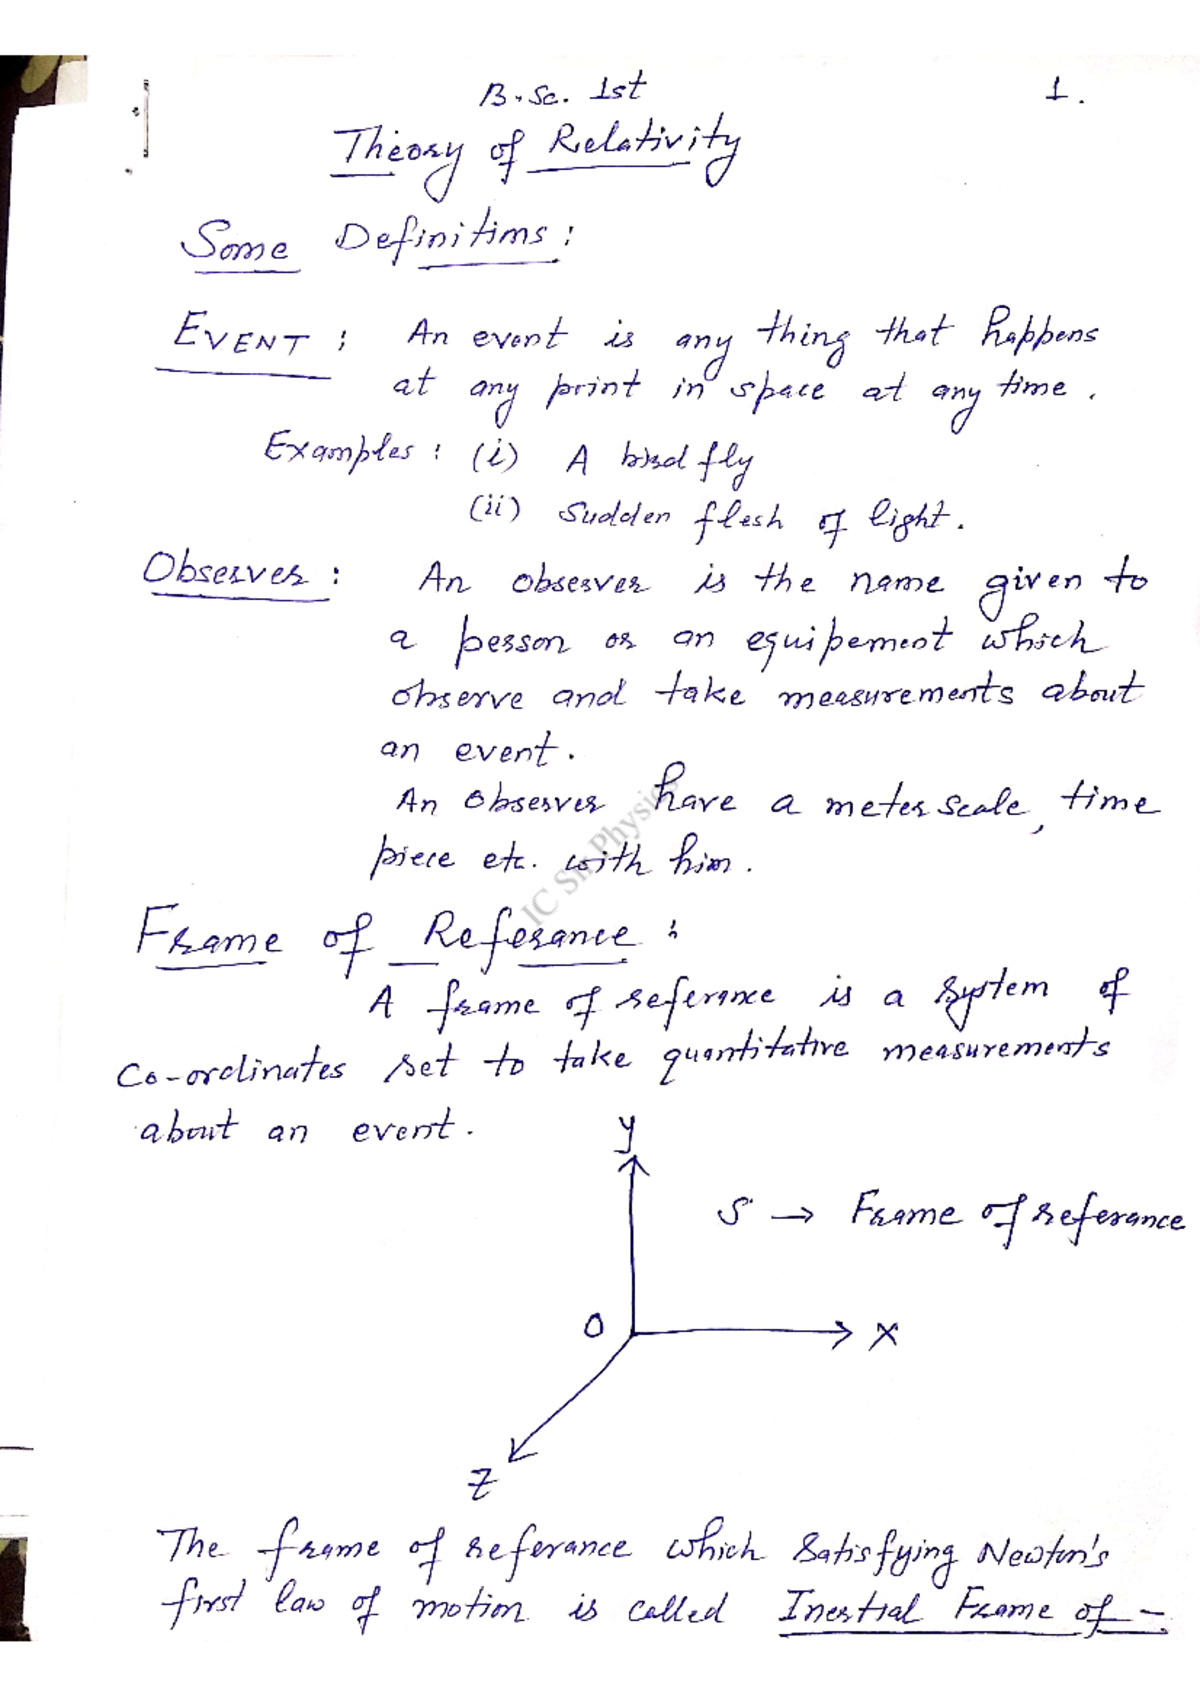 B.Sc. 1st
1.
Theory of Relativity
Some Definitions :
EVENT : An event is any thing that happens
at any print in space at any time.
Examples : (i) A bird fly
(ii) Sudden flesh of light.
Observer : An observer is the name given to
a person or an equipement which
observe and take measurements about
an event.
An Observer have a meter scale, time
piece etc. with him.
IC Sir Physics
Frame of Referance :
A frame of referance is a system of
Co-ordinates set to take quantitative measurements
about an event.
y
S → Frame of referance
O
X
Z
The frame of referance which satisfying Newton's
first law of motion is called Inertial Frame of -